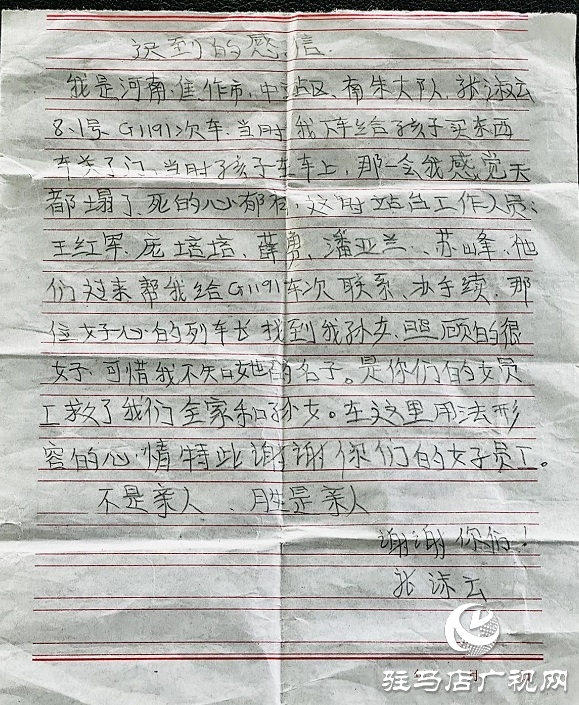 迟到的感信
我是河南焦作市,中站区,南朱大队,张淑云
8.1号G1191次车,当时我下车给孩子买东西
车关了门,当时孩子在车上,那一会我感觉天
都塌了,死的心都有,这时站台工作人员、
王红军、庞培培、薛勇、潘亚兰、苏峰、他
们过来帮我给G1191车次联系、办手续,那
位好心的列车长找到我孙女,照顾的很
好,可惜我不知她的名子。是你们的好员
工救了我们全家和孙女。在这里用法形
容的心情特此谢谢你们的好员工。
不是亲人、胜是亲人
谢谢你们!
张淑云
年 月 日
驻马店广视网